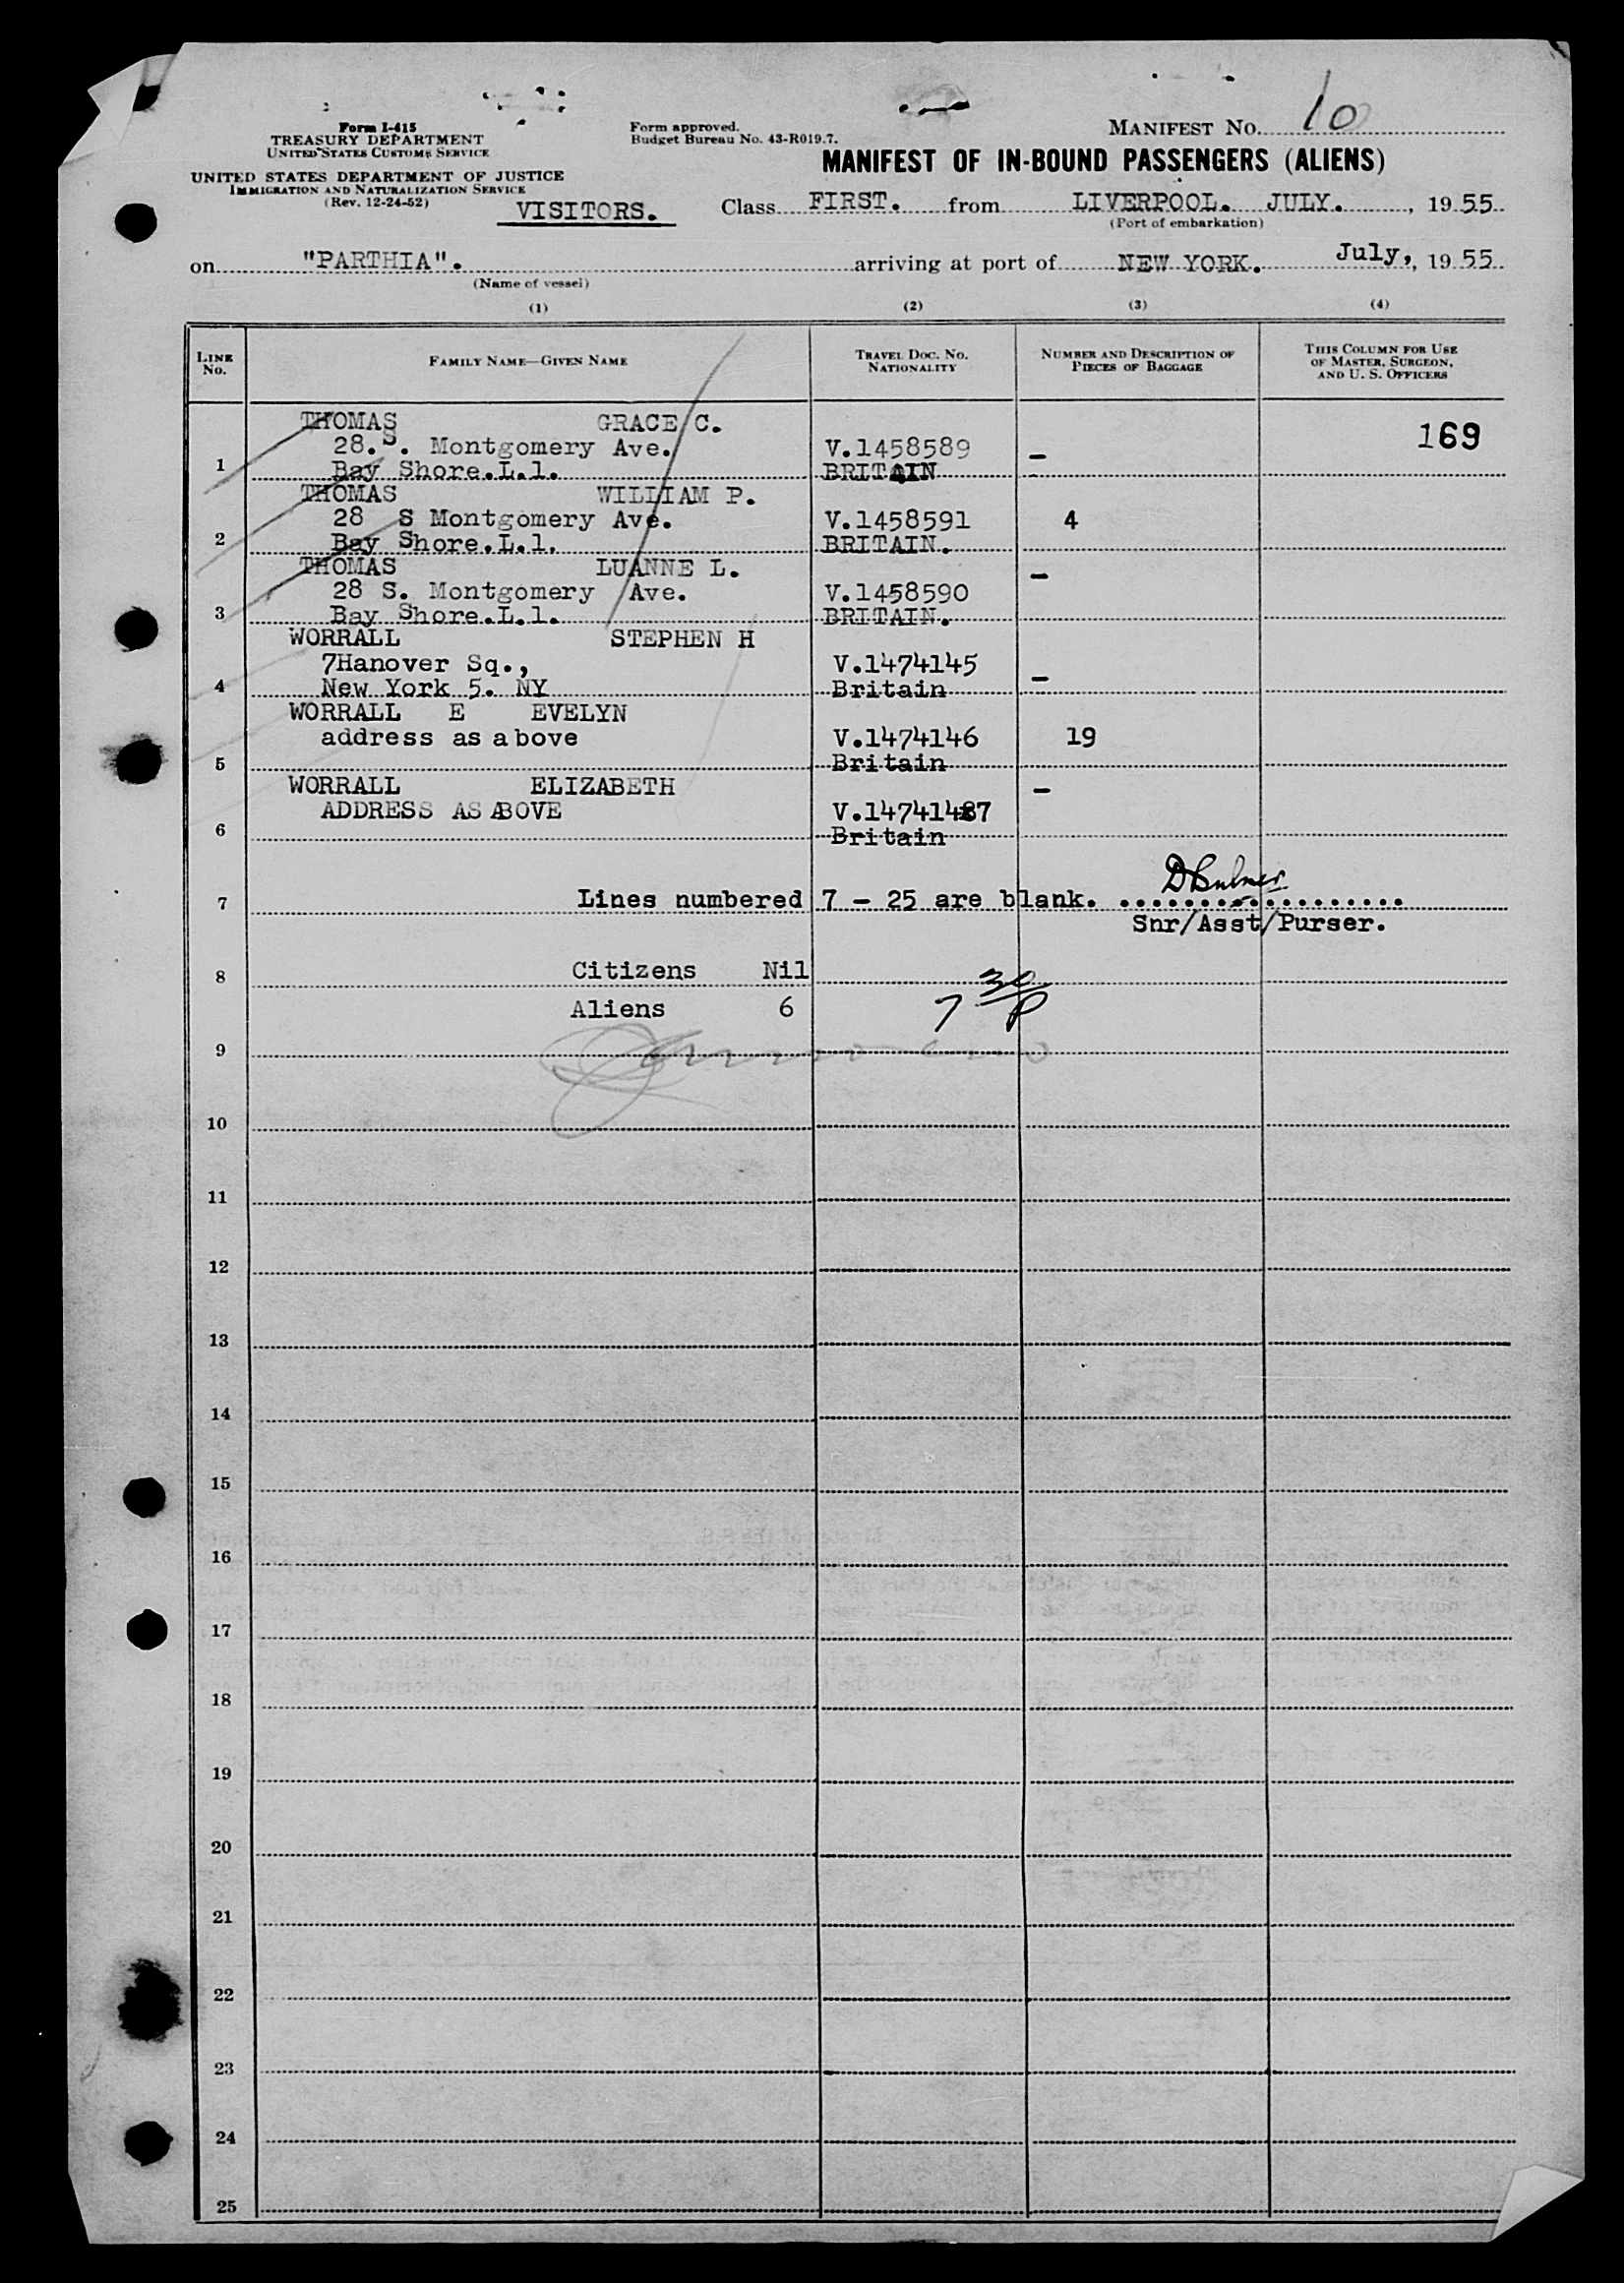 Form I-415
TREASURY DEPARTMENT
UNITED STATES CUSTOMS SERVICE
UNITED STATES DEPARTMENT OF JUSTICE
IMMIGRATION AND NATURALIZATION SERVICE
(Rev. 12-24-52)
Form approved.
Budget Bureau No. 43-R019.7.
MANIFEST NO. 10
MANIFEST OF IN-BOUND PASSENGERS (ALIENS)
VISITORS. Class FIRST. from LIVERPOOL. JULY. , 1955
(Port of embarkation)
on "PARTHIA". arriving at port of NEW YORK. July, , 1955
(Name of vessel)
(1) (2) (3) (4)
LINE NO. FAMILY NAME—GIVEN NAME TRAVEL DOC. NO. NATIONALITY NUMBER AND DESCRIPTION OF PIECES OF BAGGAGE THIS COLUMN FOR USE OF MASTER, SURGEON, AND U. S. OFFICERS
THOMAS GRACE C. 169
28. S. Montgomery Ave. V.1458589 –
1 Bay Shore.L.l. BRITAIN
THOMAS WILLIAM P.
28 S Montgomery Ave. V.1458591 4
2 Bay Shore.L.l. BRITAIN.
THOMAS LUANNE L. –
28 S. Montgomery Ave. V.1458590
3 Bay Shore.L.l. BRITAIN.
WORRALL STEPHEN H
7Hanover Sq., V.1474145
4 New York 5. NY Britain –
WORRALL E EVELYN
address as above V.1474146 19
5 Britain
WORRALL ELIZABETH –
ADDRESS AS ABOVE V.1474147
6 Britain
7 Lines numbered 7 – 25 are blank. ..................
Snr/Asst/Purser.
8 Citizens Nil
Aliens 6 7 30/P
9
10
11
12
13
14
15
16
17
18
19
20
21
22
23
24
25